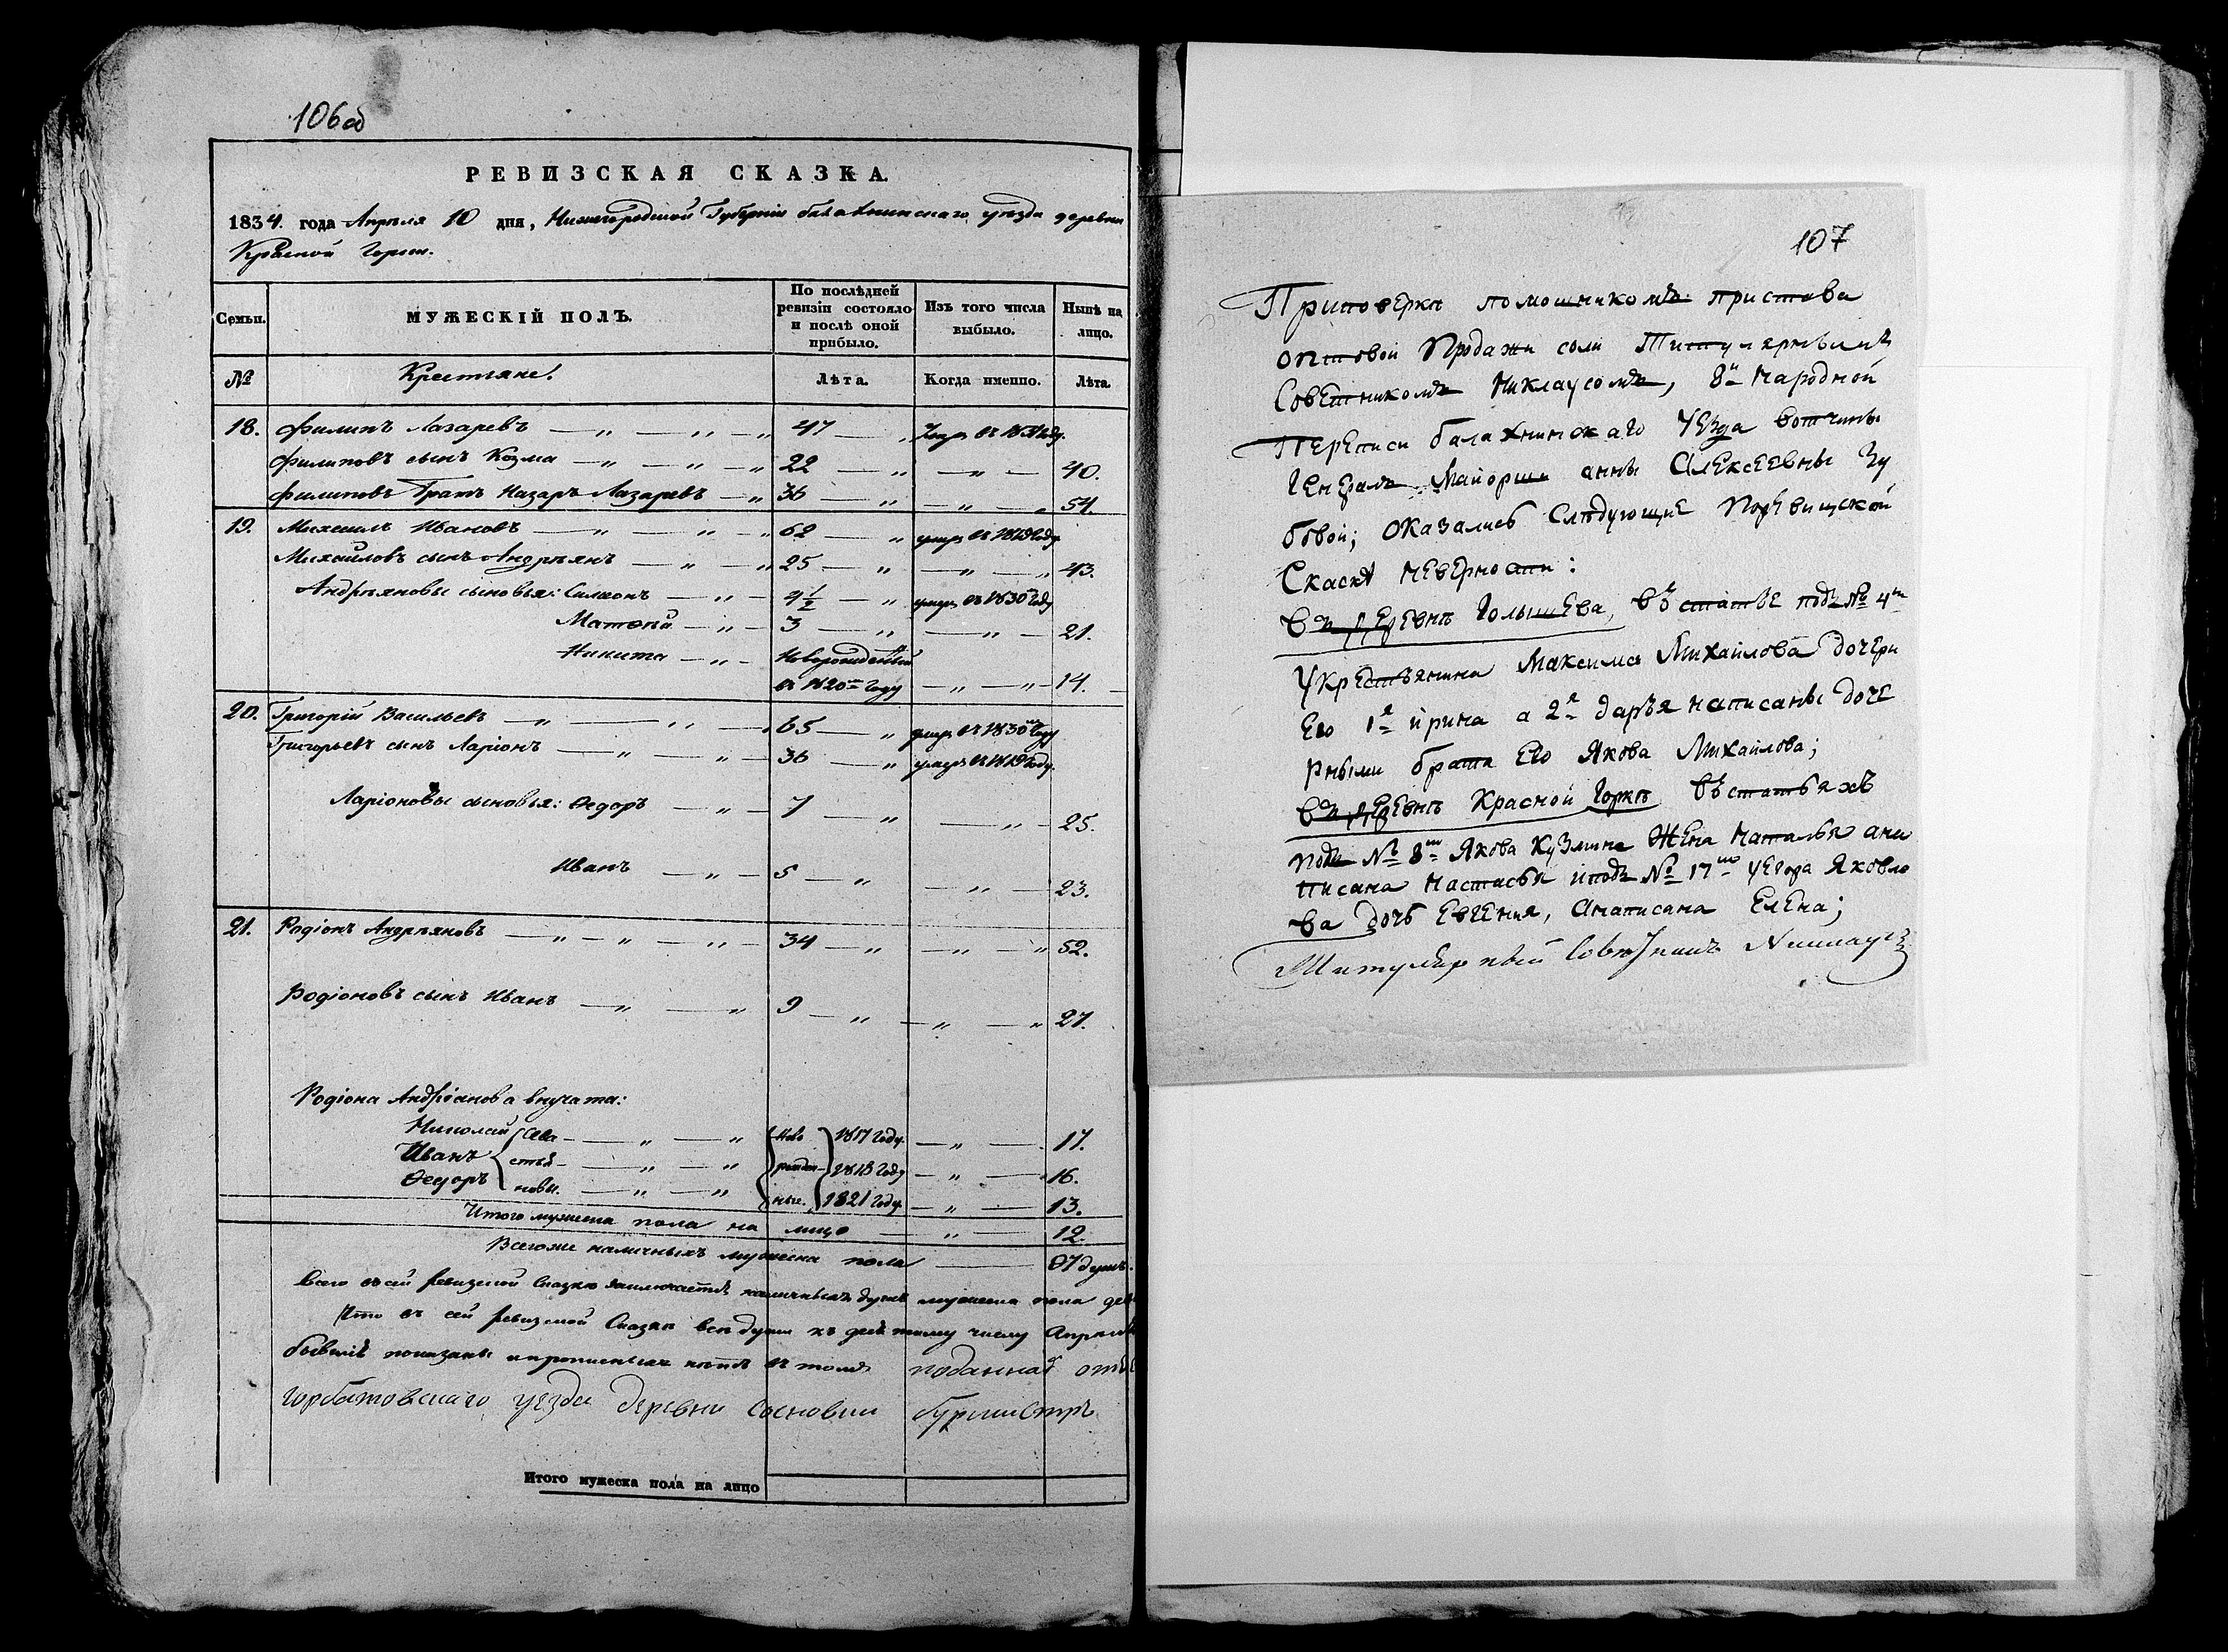 106 об
РЕВИЗСКАЯ СКАЗКА.
1834. года Апреля 10 дня, Нижегородской Губернии балахнинскаго уезда деревни
Красной Горки.
Семьи. МУЖЕСКІЙ ПОЛЪ. По послѣдней ревизіи состояло и послѣ оной прибыло. Изъ того числа выбыло. Нынѣ на лицо.
№ Крестьяне. Лѣта. Когда именно. Лѣта.
18. Филипъ Лазаревъ — „ — „ — „ 47 — „
Филиповъ сынъ Козма — „ — „ — „ 22 — „ — „ — 40.
Филиповъ Братъ Назаръ Лазаревъ — „ 36 — „ — „ — „ 54.
19. Михаилъ Ивановъ — „ — „ — „ 62 — „ умеръ въ 1819 году.
Михайловъ сынъ Андреянъ — „ — „ 25 — „ — „ — „ 43.
Андреяновы сыновья: Симеонъ — „ — 4 1/2 — „ умеръ въ 1830 году
Матвей — „ — 3 — „ — „ — 21.
Никита — „ — Новорожденный
въ 1820м году — „ — „ — 14.
20. Григорій Васильевъ — „ — „ — „ 65 — „ умеръ въ 1830 году
Григорьевъ сынъ Ларіонъ — „ — „ — 36 — „ умеръ въ 1819 году.
Ларіоновы сыновья: Ѳедоръ — „ — 7 — „ — „ — 25.
Иванъ — „ — 5 — „ — „ — 23.
21. Родіонъ Андреяновъ — „ — „ — „ — 34 — „ — „ — „ 52.
Родіоновъ сынъ Иванъ — „ — „ 9 — „ — „ — „ 27.
Родіона Андріанова внучата:
Николай Сева- — „ — „ Ново 1817 году. — „ — 17.
Иванъ стья- — „ — „ рожден- 1818 году — „ — 16.
Ѳедоръ новы. — „ — „ ные. 1821 году. — „ — 13.
Итого мужеска пола на лицо — „ — 12.
Всего же наличныхъ мужеска пола — 97 душъ.
Всего въ сей Ревизской Сказке заключается наличныхъ душъ мужеска пола
Что въ сей Ревизской Сказке все души къ
бывшіе показаны и прописныхъ нетъ въ томъ поданная
Горбатовскаго уезда деревни Сосновки бурмистръ
Итого мужеска пола на лицо
107
Приповеркѣ помошникомъ пристава
оптовой Продажи соли Титулярнымъ
Советникомъ Никлаусомъ, 8й Народной
Переписи балахнинскаго Уезда вотчины
Генералъ Маіорши анны Алексеевны Зу
бовой; оказались Следующие Поревизской
Скаскѣ неверности:
Въ деревнѣ Голышева, въ статье подъ № 4м
У крестьянина Максима Михайлова дочери
Его 1я ирина а 2я дарья написаны доче
рными брата Его Якова Михаилова;
Въ деревнѣ Красной Горкѣ въ статьяхъ
подъ № 8м Якова Кузмина Жена Наталья ана
писана Настасья и подъ № 17мъ у Егора Яковле
ва дочь Евгения, анаписана Елена;
Титулярный Советникъ Никлаусъ